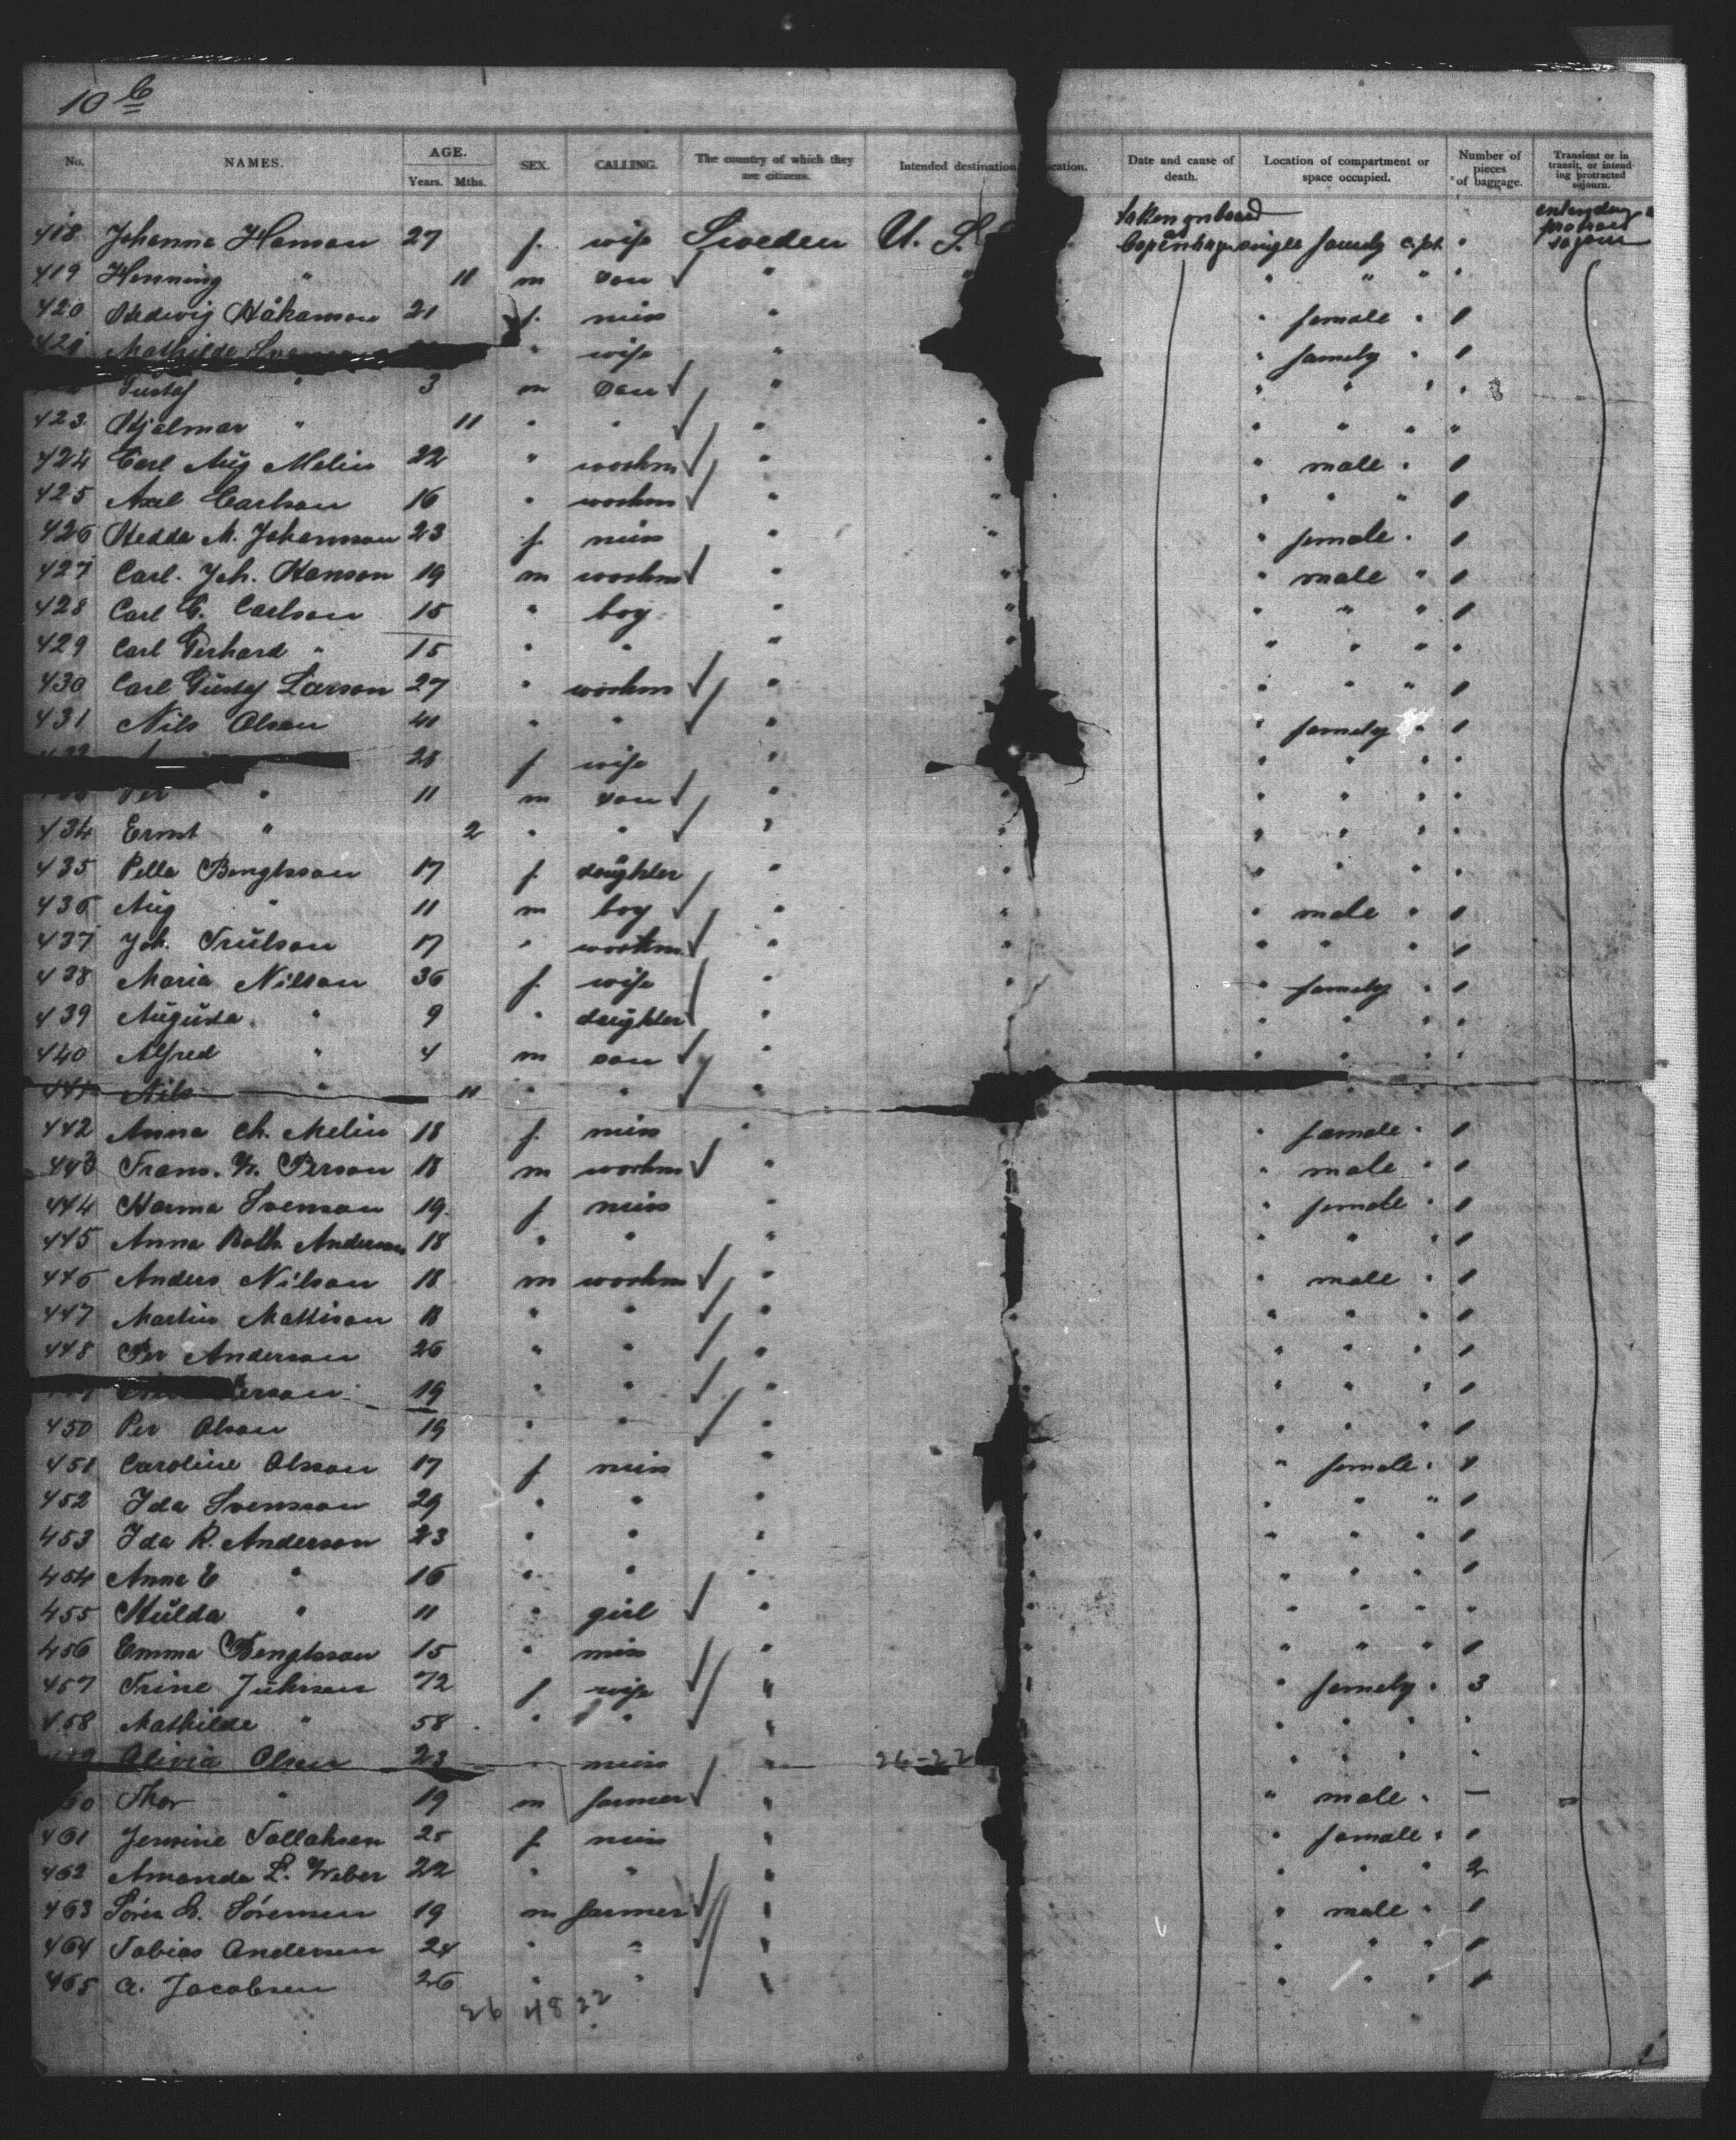 10 b
No. NAMES. AGE. Years. Mths. SEX. CALLING. The country of which they are citizens. Intended destination cation. Date and cause of death. Location of compartment or space occupied. Number of pieces of baggage. Transient or in transit, or intending protracted sojourn.
418 Johanna Hanson 27 f. wife Sweden U. S. taken on board Copenhagen single family cpt "
419 Henning " 11 m son " " " " " "
420 Hedwig Håkanson 21 f. miss " " female " 1
421 Mathilde " wife " " family " 1
Gustaf " 3 m son " " " " "
423 Hjalmar " 11 " " " " " " " "
424 Carl Aug Melin 22 " workm " " " male " 1
425 Axel Carlson 16 " workm " " " " " 1
426 Hedda M. Johannson 23 f. miss " " " female " 1
427 Carl. Joh. Hanson 19 m workm " " male " 1
428 Carl G. Carlson 15 " boy " " " " " 1
429 Carl Gerhard " 15 " " " " " " " "
430 Carl Gustaf Larson 27 " workm " " " " 1
431 Nils Olson 41 " " " " family " 1
28 f wife " " " " "
Per " 11 m son " " " " " "
434 Ernst " 2 " " " " " " " "
435 Pella Bengtsson 17 f. daughter " " " " " "
436 Aug " 11 m boy " " " male " 1
437 Joh. Trulson 17 " workm " " " " " 1
438 Maria Nilson 36 f. wife " " " family " 1
439 Augusta " 9 " daughter " " " " "
440 Alfred " 4 m son " " " " " "
441 Nils " 11 " " "
442 Anna Ch. Melin 18 f. miss " " female " 1
443 Frans. W. Person 18 m workm " " male " 1
444 Hanna Svenson 19. f miss " " female " 1
445 Anna Both. Anderson 18 " " " " " " 1
446 Anders Nilson 18 m workm " " male " 1
447 Martin Mattison 18 " " " " " " " 1
448 Per Anderson 26 " " " " " " " 1
erson 19 " " " " " " 1
450 Per Olson 19 " " " " " " 1
451 Caroline Olsson 17 f miss " " female " 1
452 Ida Svensson 29 " " " " " " 1
453 Ida R. Anderson 23 " " " " " " " 1
454 Anna E " 16 " " " " " " 1
455 Hulda " 11 " girl " " " " " "
456 Emma Bengtsson 15 " miss " " " " " 1
457 Trine Juhnsen 72 f wife " " " family " 3
458 Mathilde " 58 " " " " " " " "
Olivia Olsen 23 " miss " 26-22 " " " "
60 Thor " 19 m farmer " " male " —
461 Jensine Tollaksen 25 f miss " " female " 1
462 Amanda L. Weber 22 " " " " " " 2
463 Sören S. Sörensen 19 m farmer " " male " 1
464 Tobias Andersen 24 " " " " " " 1
465 A. Jacobsen 26 " " " " " " 1
26 48 22